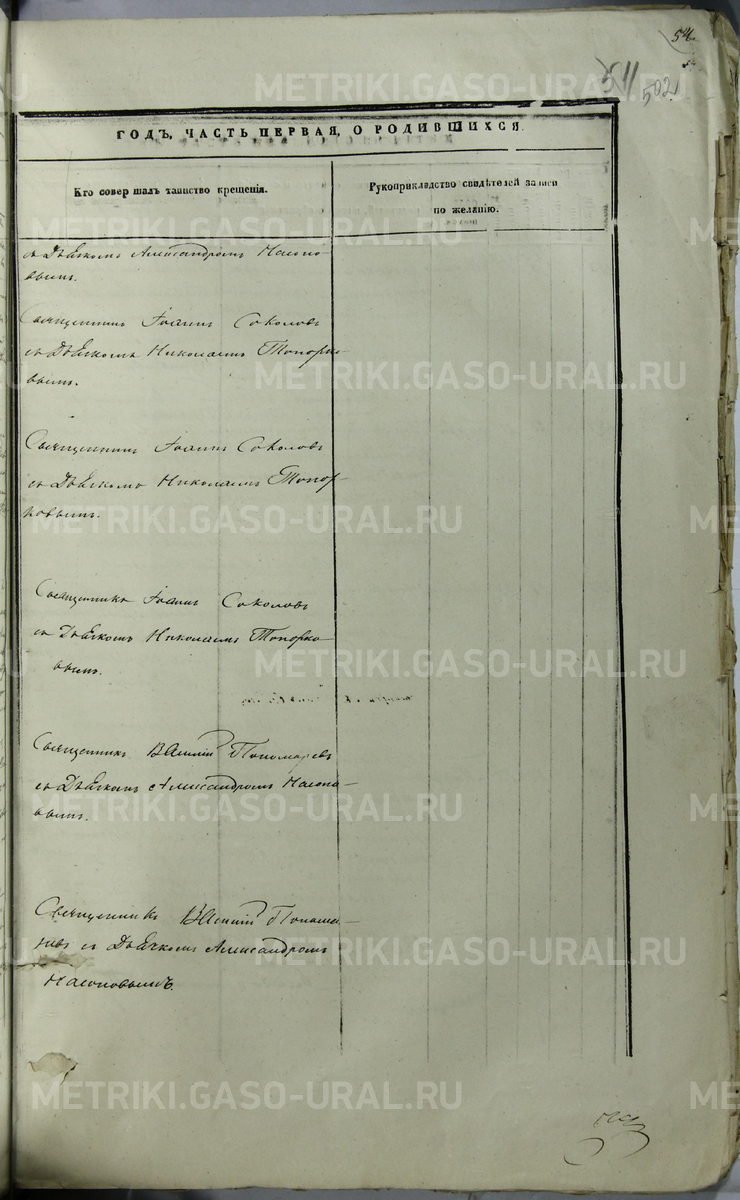 54.
511
502
ГОДЪ, ЧАСТЬ ПЕРВАЯ, О РОДИВШИХСЯ.
Кто совершалъ таинство крещенія.
Рукоприкладство свидѣтелей записи
по желанію.
съ Дьячкомъ Александромъ Насоно-
вымъ.
Священникъ Іоаннъ Соколовъ
съ Дьячкомъ Николаемъ Топорко-
вымъ.
Священникъ Іоаннъ Соколовъ
съ Дьячкомъ Николаемъ Топор-
ковымъ.
Священникъ Іоаннъ Соколовъ
съ Дьячкомъ Николаемъ Топорко-
вымъ.
Священникъ Василій Пономаревъ
съ Дьячкомъ Александромъ Насоно-
вымъ.
Священникъ Василій Понома-
ревъ съ Дьячкомъ Александромъ
Насоновымъ.
METRIKI.GASO-URAL.RU